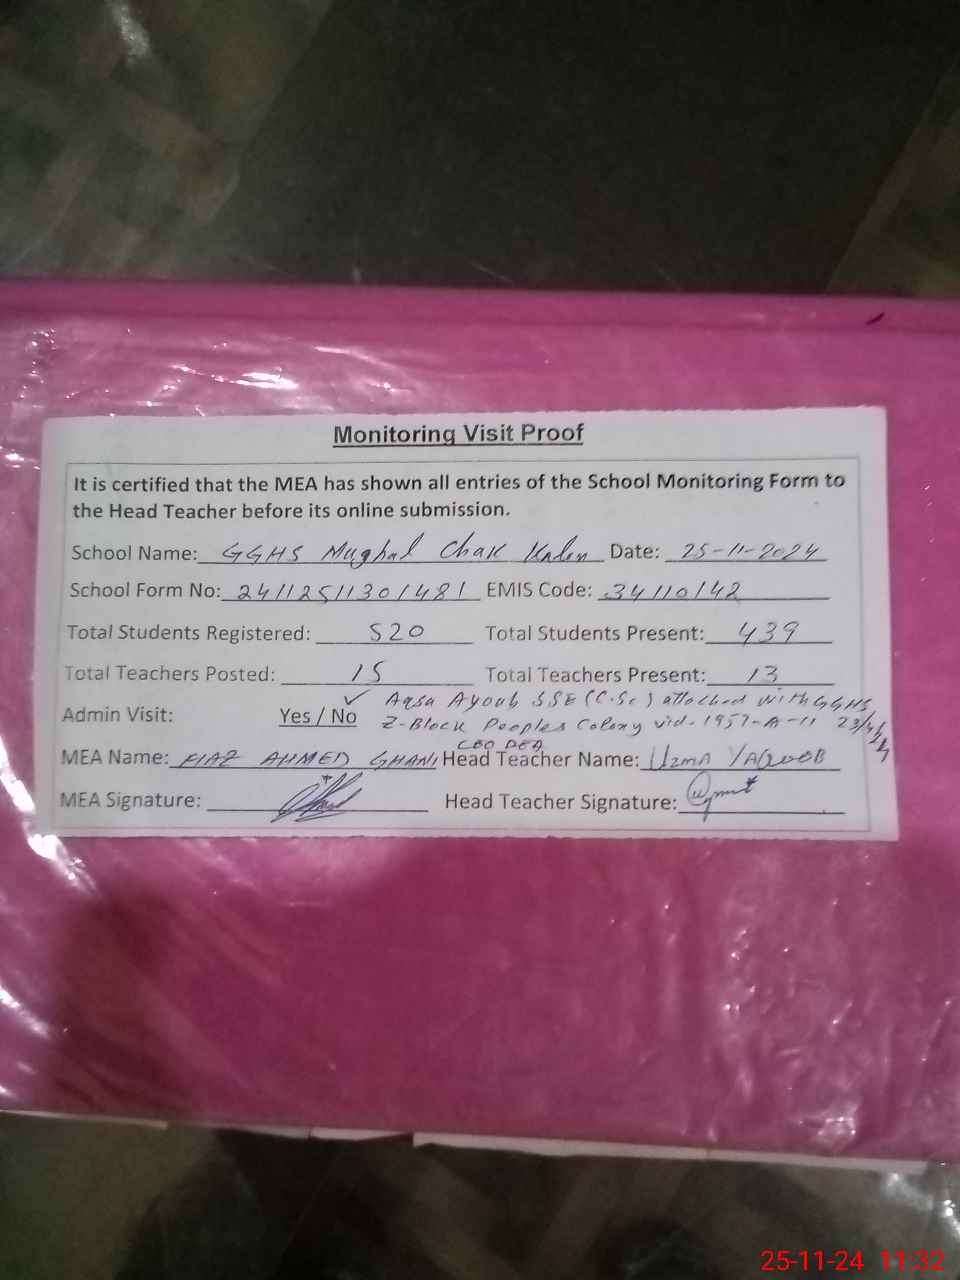 Monitoring Visit Proof
It is certified that the MEA has shown all entries of the School Monitoring Form to
the Head Teacher before its online submission.
School Name: GGHS Mughal Chak Kalan Date: 25-11-2024
School Form No: 24112511301481 EMIS Code: 34110142
Total Students Registered: 520 Total Students Present: 439
Total Teachers Posted: 15 Total Teachers Present: 13
✓ Aqsa Ayoub SSE (C.Sc) attached with GGHS
Admin Visit: Yes / No Z-Block Peoples Colony vid- 1957-A-11
CEO DEA
MEA Name: FIAZ AHMED GHANI Head Teacher Name: Uzma YAQOOB
MEA Signature: Head Teacher Signature:
25-11-24 11:32